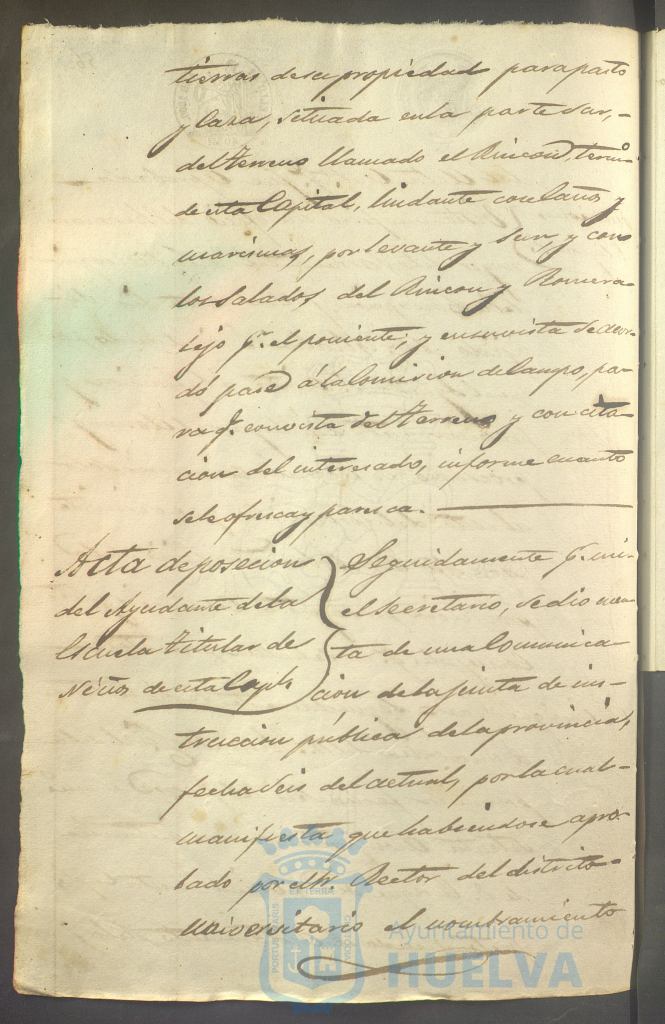 tierras de su propiedad para pasto
y laza, situada en la parte Sur,
del terreno llamado el Rincon, term.º
de esta Capital, lindante con Caños y
marismas, por levante y Sur, y con
los Salados del Rincon y Romera-
lejo p.r el poniente; y en su vista se acor-
dó pase á la Comision de Campo, pa-
ra q.e con vista del terreno y con cita-
cion del interesado, informe cuanto
se le ofrezca y paresca.
Acta de posecion
del Ayudante de la
Escuela titular de
Niños de esta Cap.l
Seguidamente p.r mi
el Secretario, se dio cuen-
ta de una Comunica
cion de la Junta de ins-
truccion pública de la provincia,
fecha Seis del actual, por la cual
manifiesta que habiendose apro-
bado por el Sr. Rector del distrito
universitario el nombramiento
Ayuntamiento de
HUELVA